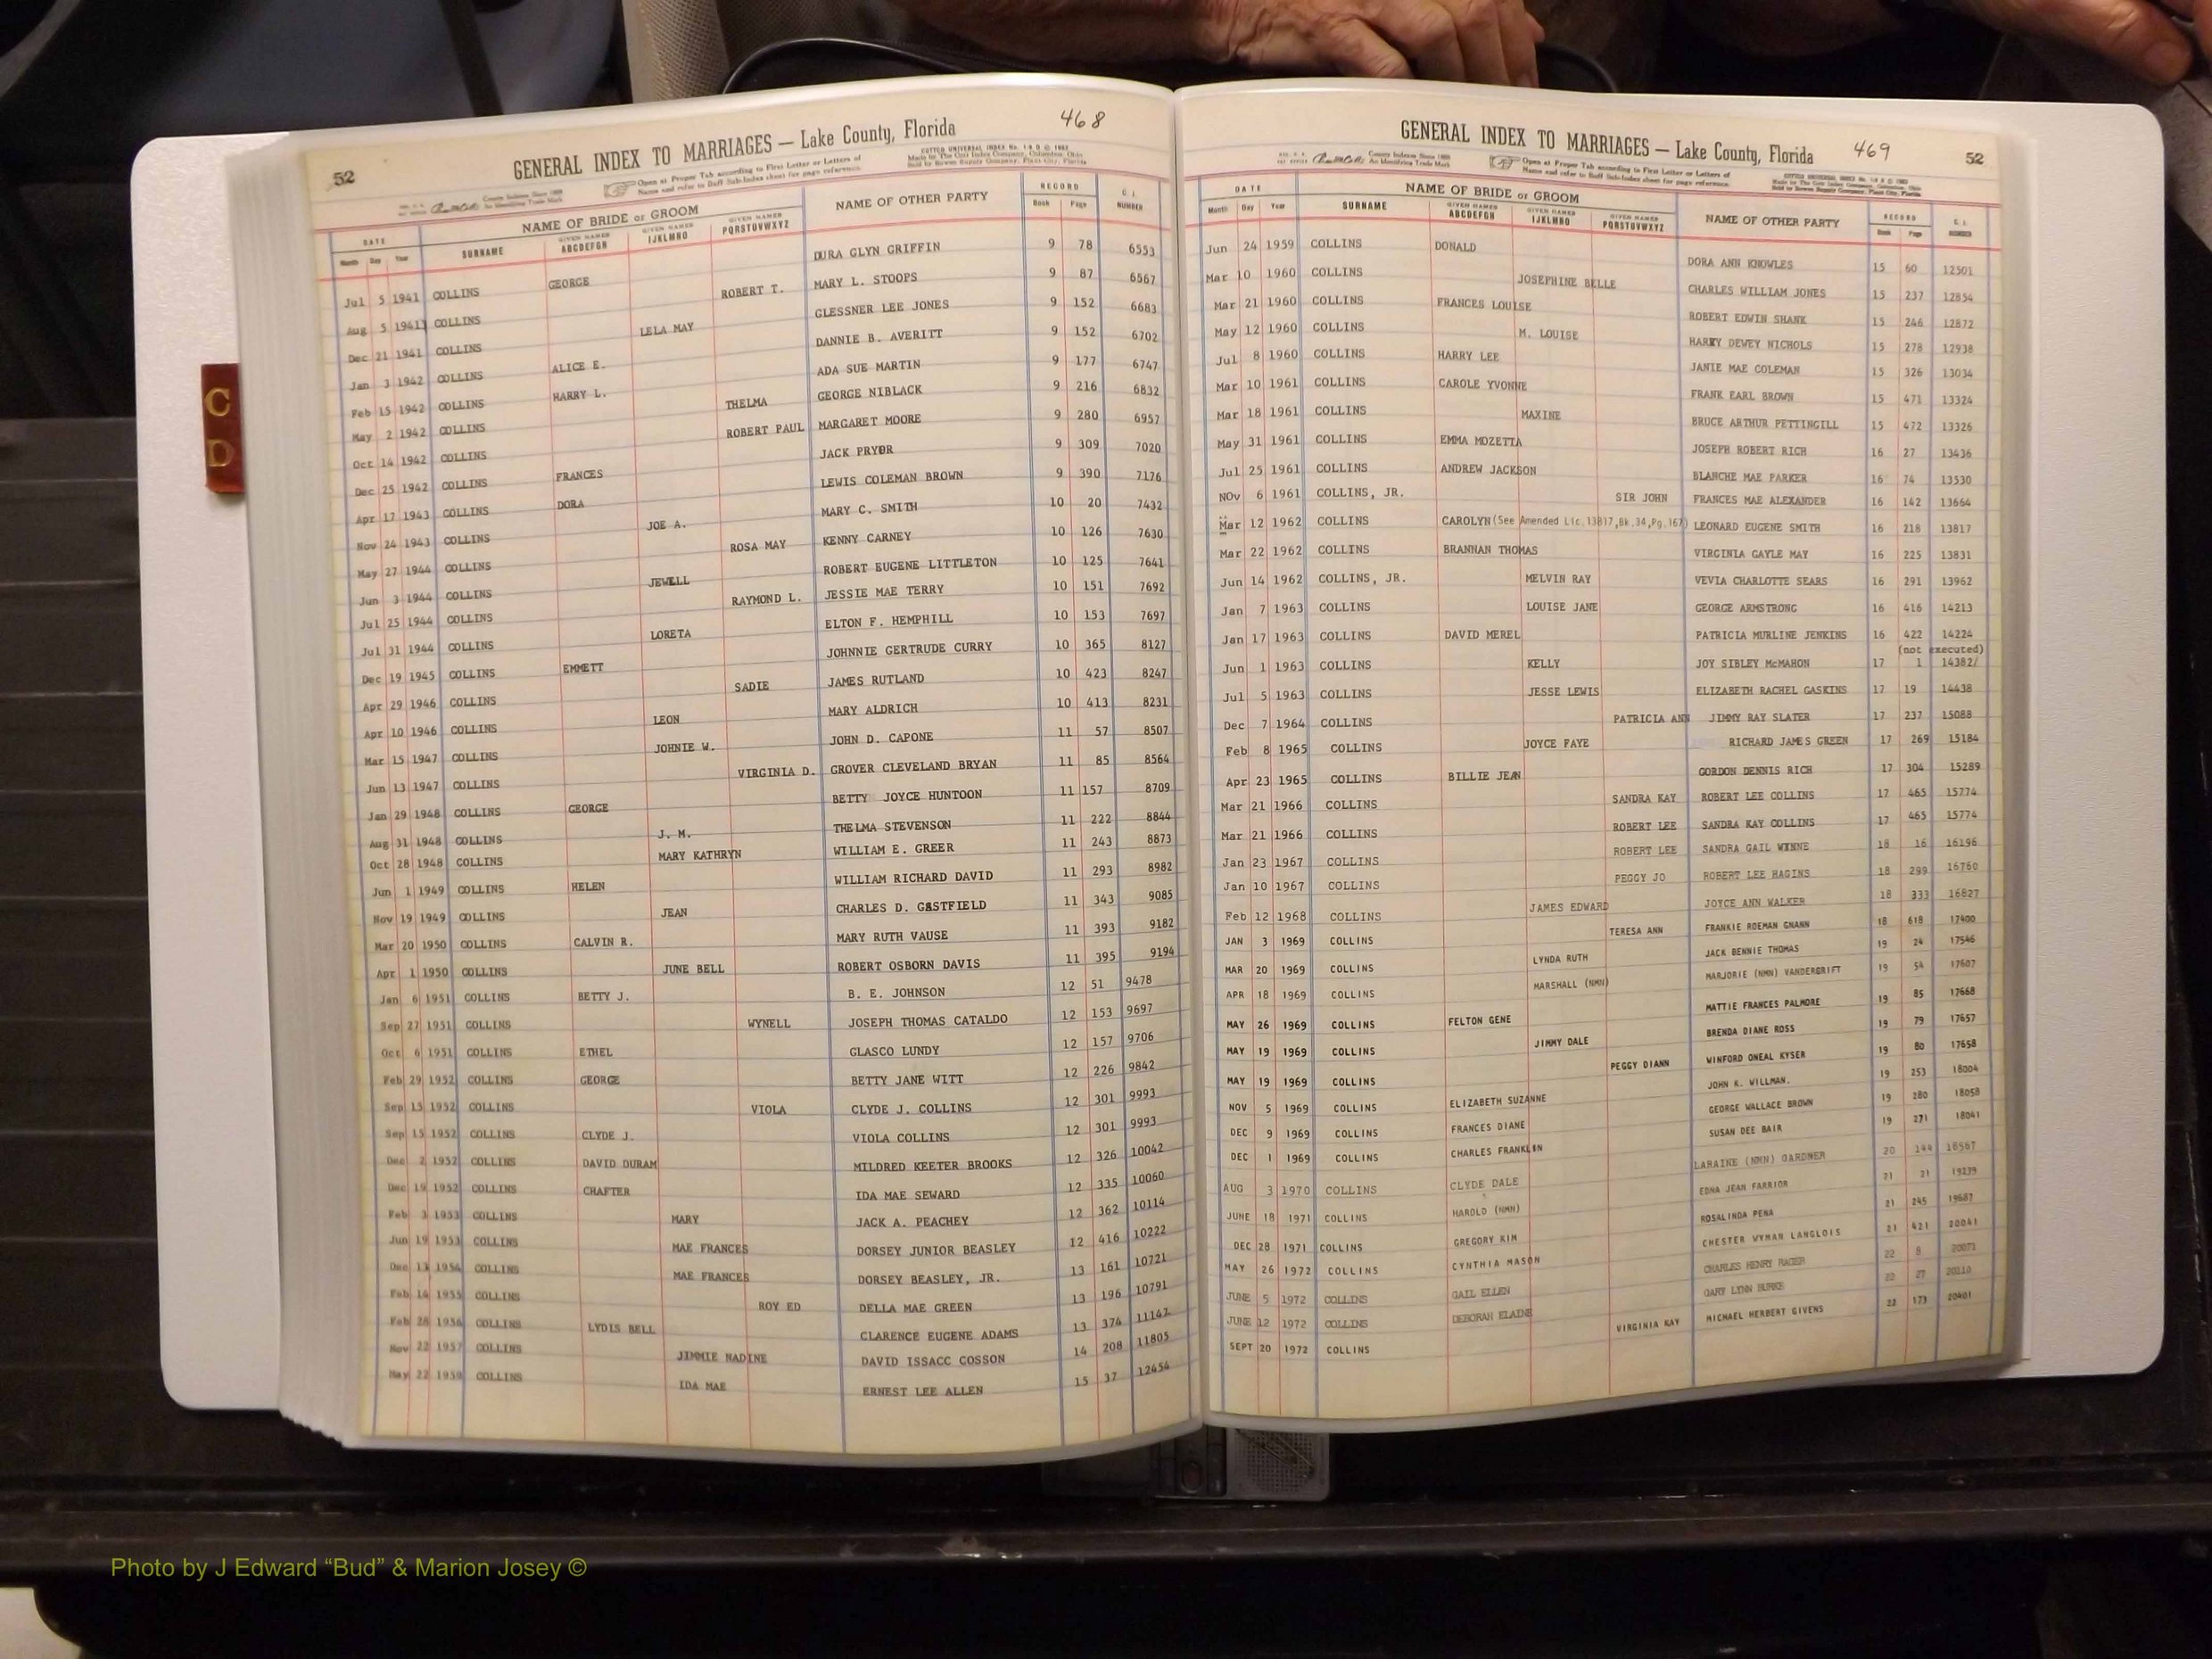 52
GENERAL INDEX TO MARRIAGES — Lake County, Florida
468
Open at Proper Tab according to First Letter or Letters of
Name and refer to Buff Sub-Index sheet for page reference.
NAME OF BRIDE or GROOM
NAME OF OTHER PARTY
RECORD
DATE
Month Day Year SURNAME GIVEN NAMES ABCDEFGH GIVEN NAMES IJKLMNO GIVEN NAMES PQRSTUVWXYZ Book Page NUMBER
Jul 5 1941 COLLINS GEORGE DURA GLYN GRIFFIN 9 78 6553
Aug 5 1941 COLLINS ROBERT T. MARY L. STOOPS 9 87 6567
Dec 21 1941 COLLINS LELA MAY GLESSNER LEE JONES 9 152 6683
Jan 3 1942 COLLINS ALICE E. DANNIE B. AVERITT 9 152 6702
Feb 15 1942 COLLINS HARRY L. ADA SUE MARTIN 9 177 6747
May 2 1942 COLLINS THELMA GEORGE NIBLACK 9 216 6832
Oct 14 1942 COLLINS ROBERT PAUL MARGARET MOORE 9 280 6957
Dec 25 1942 COLLINS FRANCES JACK PRYOR 9 309 7020
Apr 17 1943 COLLINS DORA LEWIS COLEMAN BROWN 9 390 7176
Nov 24 1943 COLLINS JOE A. MARY C. SMITH 10 20 7432
May 27 1944 COLLINS ROSA MAY KENNY CARNEY 10 126 7630
Jun 3 1944 COLLINS JEWELL ROBERT EUGENE LITTLETON 10 125 7641
Jul 25 1944 COLLINS RAYMOND L. JESSIE MAE TERRY 10 151 7692
Jul 31 1944 COLLINS LORETA ELTON F. HEMPHILL 10 153 7697
Dec 19 1945 COLLINS EMMETT JOHNNIE GERTRUDE CURRY 10 365 8127
Apr 29 1946 COLLINS SADIE JAMES RUTLAND 10 423 8247
Apr 10 1946 COLLINS LEON MARY ALDRICH 10 413 8231
Mar 15 1947 COLLINS JOHNIE W. JOHN D. CAPONE 11 57 8507
Jun 13 1947 COLLINS VIRGINIA D. GROVER CLEVELAND BRYAN 11 85 8564
Jan 29 1948 COLLINS GEORGE BETTY JOYCE HUNTOON 11 157 8709
Aug 31 1948 COLLINS J. M. THELMA STEVENSON 11 222 8844
Oct 28 1948 COLLINS MARY KATHRYN WILLIAM E. GREER 11 243 8873
Jun 1 1949 COLLINS HELEN WILLIAM RICHARD DAVID 11 293 8982
Nov 19 1949 COLLINS JEAN CHARLES D. GASTFIELD 11 343 9085
Mar 20 1950 COLLINS CALVIN R. MARY RUTH VAUSE 11 393 9182
Apr 1 1950 COLLINS JUNE BELL ROBERT OSBORN DAVIS 11 395 9194
Jan 6 1951 COLLINS BETTY J. B. E. JOHNSON 12 51 9478
Sep 27 1951 COLLINS WYNELL JOSEPH THOMAS CATALDO 12 153 9697
Oct 6 1951 COLLINS ETHEL GLASCO LUNDY 12 157 9706
Feb 29 1952 COLLINS GEORGE BETTY JANE WITT 12 226 9842
Sep 15 1952 COLLINS VIOLA CLYDE J. COLLINS 12 301 9993
Sep 15 1952 COLLINS CLYDE J. VIOLA COLLINS 12 301 9993
Dec 2 1952 COLLINS DAVID DURAM MILDRED KEETER BROOKS 12 326 10042
Dec 19 1952 COLLINS CHAFTER IDA MAE SEWARD 12 335 10060
Feb 3 1953 COLLINS MARY JACK A. PEACHEY 12 362 10114
Jun 19 1953 COLLINS MAE FRANCES DORSEY JUNIOR BEASLEY 12 416 10222
Dec 13 1954 COLLINS MAE FRANCES DORSEY BEASLEY, JR. 13 161 10721
Feb 14 1955 COLLINS ROY ED DELLA MAE GREEN 13 196 10791
Feb 28 1956 COLLINS LYDIS BELL CLARENCE EUGENE ADAMS 13 374 11147
Nov 22 1957 COLLINS JIMMIE NADINE DAVID ISSACC COSSON 14 208 11805
May 22 1959 COLLINS IDA MAE ERNEST LEE ALLEN 15 37 12454
GENERAL INDEX TO MARRIAGES — Lake County, Florida
469
52
Open at Proper Tab according to First Letter or Letters of
Name and refer to Buff Sub-Index sheet for page reference.
NAME OF BRIDE or GROOM
NAME OF OTHER PARTY
RECORD
DATE
Month Day Year SURNAME GIVEN NAMES ABCDEFGH GIVEN NAMES IJKLMNO GIVEN NAMES PQRSTUVWXYZ Book Page NUMBER
Jun 24 1959 COLLINS DONALD DORA ANN KNOWLES 15 60 12501
Mar 10 1960 COLLINS JOSEPHINE BELLE CHARLES WILLIAM JONES 15 237 12854
Mar 21 1960 COLLINS FRANCES LOUISE ROBERT EDWIN SHANK 15 246 12872
May 12 1960 COLLINS M. LOUISE HARRY DEWEY NICHOLS 15 278 12938
Jul 8 1960 COLLINS HARRY LEE JANIE MAE COLEMAN 15 326 13034
Mar 10 1961 COLLINS CAROLE YVONNE FRANK EARL BROWN 15 471 13324
Mar 18 1961 COLLINS MAXINE BRUCE ARTHUR PETTINGILL 15 472 13326
May 31 1961 COLLINS EMMA MOZETTA JOSEPH ROBERT RICH 16 27 13436
Jul 25 1961 COLLINS ANDREW JACKSON BLANCHE MAE PARKER 16 74 13530
NOv 6 1961 COLLINS, JR. SIR JOHN FRANCES MAE ALEXANDER 16 142 13664
Mar 12 1962 COLLINS CAROLYN (See Amended Lic. 13817, Bk. 34, Pg. 167) LEONARD EUGENE SMITH 16 218 13817
Mar 22 1962 COLLINS BRANNAN THOMAS VIRGINIA GAYLE MAY 16 225 13831
Jun 14 1962 COLLINS, JR. MELVIN RAY VEVIA CHARLOTTE SEARS 16 291 13962
Jan 7 1963 COLLINS LOUISE JANE GEORGE ARMSTRONG 16 416 14213
Jan 17 1963 COLLINS DAVID MEREL PATRICIA MURLINE JENKINS 16 422 14224
(not executed)
Jun 1 1963 COLLINS KELLY JOY SIBLEY McMAHON 17 1 14382/
Jul 5 1963 COLLINS JESSE LEWIS ELIZABETH RACHEL GASKINS 17 19 14438
Dec 7 1964 COLLINS PATRICIA ANN JIMMY RAY SLATER 17 237 15088
Feb 8 1965 COLLINS JOYCE FAYE RICHARD JAMES GREEN 17 269 15184
Apr 23 1965 COLLINS BILLIE JEAN GORDON DENNIS RICH 17 304 15289
Mar 21 1966 COLLINS SANDRA KAY ROBERT LEE COLLINS 17 465 15774
Mar 21 1966 COLLINS ROBERT LEE SANDRA KAY COLLINS 17 465 15774
Jan 23 1967 COLLINS ROBERT LEE SANDRA GAIL WYNNE 18 16 16196
Jan 10 1967 COLLINS PEGGY JO ROBERT LEE HAGINS 18 299 16760
Feb 12 1968 COLLINS JAMES EDWARD JOYCE ANN WALKER 18 333 16827
JAN 3 1969 COLLINS TERESA ANN FRANKIE ROEMAN GNANN 18 618 17400
MAR 20 1969 COLLINS LYNDA RUTH JACK BENNIE THOMAS 19 24 17546
APR 18 1969 COLLINS MARSHALL (NMN) MARJORIE (NMN) VANDERGRIFT 19 54 17607
MAY 26 1969 COLLINS FELTON GENE MATTIE FRANCES PALMORE 19 85 17668
MAY 19 1969 COLLINS JIMMY DALE BRENDA DIANE ROSS 19 79 17657
MAY 19 1969 COLLINS PEGGY DIANN WINFORD ONEAL KYSER 19 80 17658
NOV 5 1969 COLLINS ELIZABETH SUZANNE JOHN K. WILLMAN. 19 253 18004
DEC 9 1969 COLLINS FRANCES DIANE GEORGE WALLACE BROWN 19 280 18058
DEC 1 1969 COLLINS CHARLES FRANKLIN SUSAN DEE BAIR 19 271 18041
AUG 3 1970 COLLINS CLYDE DALE LARAINE (NMN) GARDNER 20 144 18567
JUNE 18 1971 COLLINS HAROLD (NMN) EDNA JEAN FARRIOR 21 21 19239
DEC 28 1971 COLLINS GREGORY KIM ROSALINDA PENA 21 245 19687
MAY 26 1972 COLLINS CYNTHIA MASON CHESTER WYMAN LANGLOIS 21 421 20041
JUNE 5 1972 COLLINS GAIL ELLEN CHARLES HENRY RAGER 22 8
JUNE 12 1972 COLLINS DEBORAH ELAINE GARY LYNN BURKE 22 27 20110
SEPT 20 1972 COLLINS VIRGINIA KAY MICHAEL HERBERT GIVENS 22 173 20401
C
D
Photo by J Edward “Bud” & Marion Josey ©